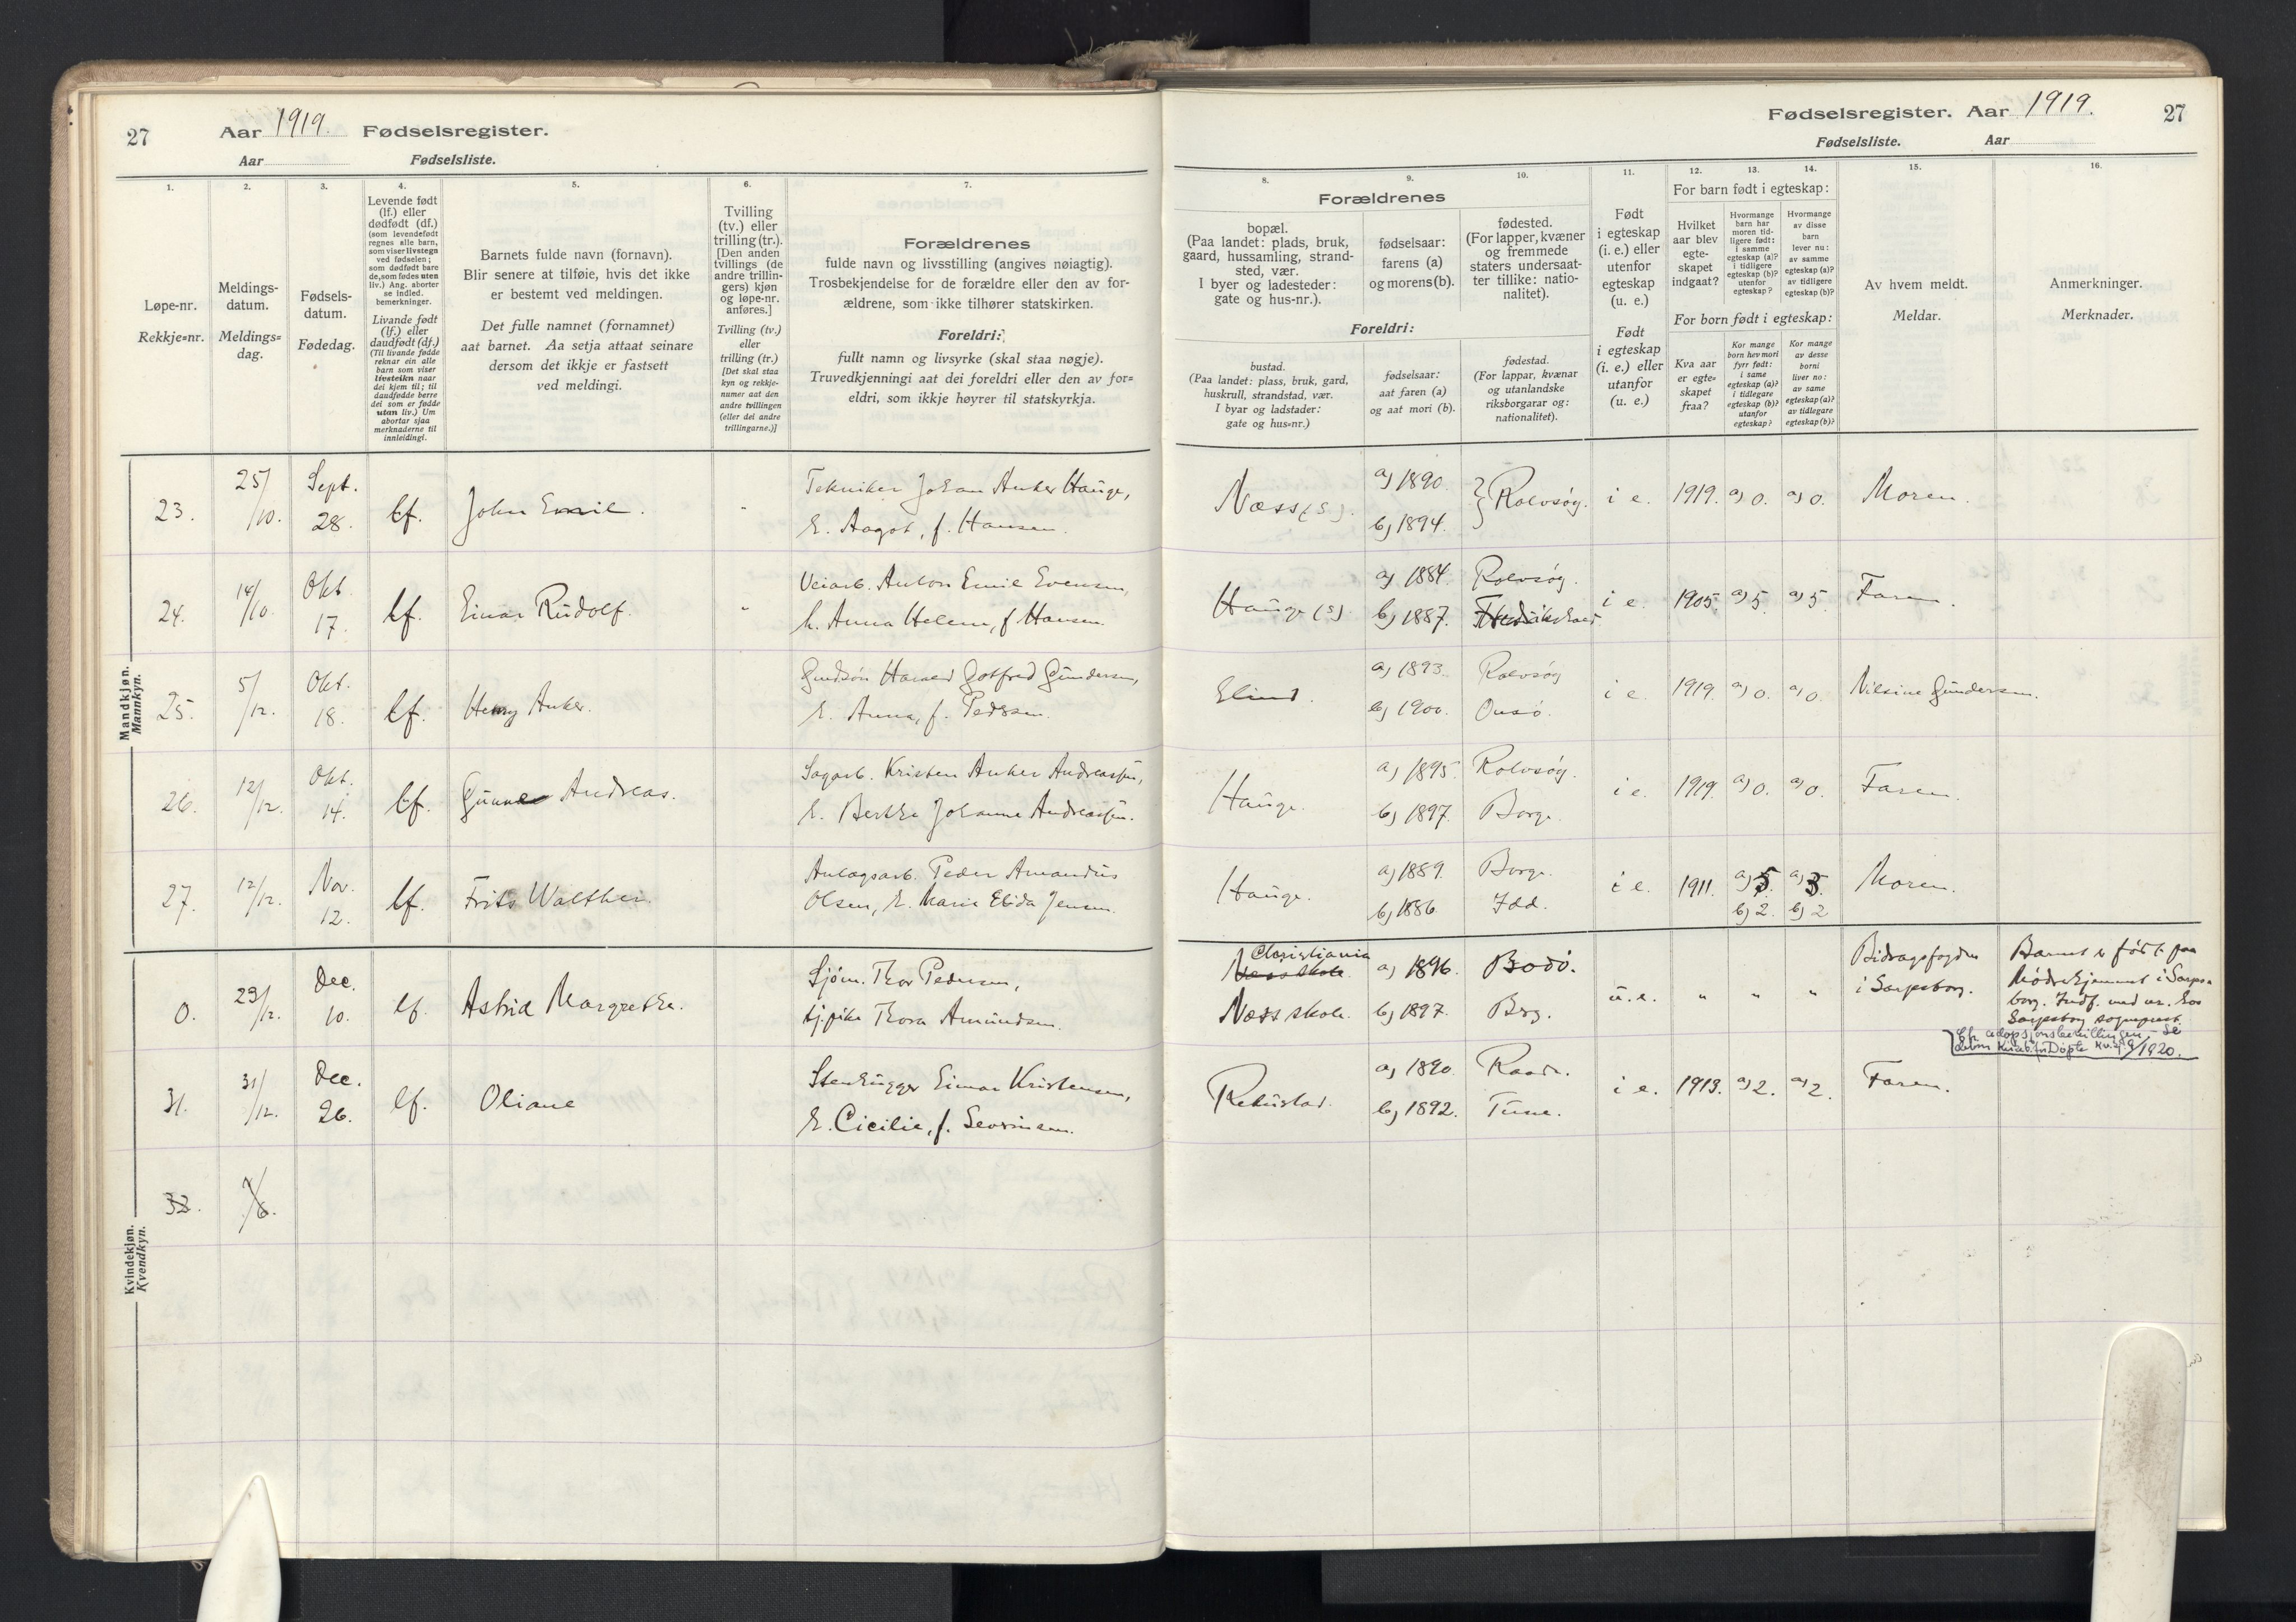 27
Aar 1919. Fødselsregister.
Aar Fødselsliste.
1.
Løpe-nr.
Rekkje=nr.
2.
Meldings-
datum.
Meldings=
dag.
3.
Fødsels-
datum.
Fødedag.
4.
Levende født
(lf.) eller
dødfødt (df.)
(som levendefødt
regnes alle barn,
som viser livstegn
ved fødselen;
som dødfødt bare
de, som fødes uten
liv.) Ang. aborter
se indled.
bemerkninger.
Livande født
(lf.) eller
daudfødt (df.)
(Til livande fødde
reknar ein alle
barn som viser
livsteikn naar
dei kjem til; til
daudfødde berre
dei som er fødde
utan liv.) Um
abortar sjaa
merknaderne til
innleidingi.
5.
Barnets fulde navn (fornavn).
Blir senere at tilføie, hvis det ikke
er bestemt ved meldingen.
Det fulle namnet (fornamnet)
aat barnet. Aa setja attaat seinare
dersom det ikkje er fastsett
ved meldingi.
6.
Tvilling
(tv.) eller
trilling (tr.).
[Den anden
tvillings (de
andre trillin-
gers) kjøn
og løpe-nr.
anføres.]
Tvilling (tv.)
eller
trilling (tr.)
[Det skal staa
kyn og rekkje-
numer aat den
andre tvillingen
(eller dei andre
trillingarne.)]
7.
Forældrenes
fulde navn og livsstilling (angives nøiagtig).
Trosbekjendelse for de forældre eller den av for-
ældrene, som ikke tilhører statskirken.
Foreldri:
fullt namn og livsyrke (skal staa nøgje).
Truvedkjenningi aat dei foreldri eller den av for=
eldri, som ikkje høyrer til statskyrkja.
Fødselsregister. Aar 1919. 27
Fødselsliste. Aar
Forældrenes
8.
bopæl.
(Paa landet: plads, bruk,
gaard, hussamling, strand-
sted, vær.
I byer og ladesteder:
gate og hus-nr.).
9.
fødselsaar:
farens (a)
og morens (b).
10.
fødested.
(For lapper, kvæner
og fremmede
staters undersaat-
ter tillike: natio-
nalitet).
Foreldri:
bustad.
(Paa landet: plass, bruk, gard,
huskrull, strandstad, vær.
I byar og ladstader:
gate og hus=nr.)
fødselsaar:
aat faren (a)
og aat mori (b).
fødestad.
(For lappar, kvænar
og utanlandske
riksborgarar og:
nationalitet).
11.
Født
i egteskap
(i. e.) eller
utenfor
egteskap
(u. e.)
Født
i egteskap
(i. e.) eller
utanfor
(u. e.)
12. 13. 14.
For barn født i egteskap:
Hvilket
aar blev
egte-
skapet
indgaat?
Hvormange
barn har
moren tid-
ligere født:
i samme
egteskap (a)?
i tidligere
egteskap (b)?
utenfor
egteskap?
Hvormange
av disse
barn
lever nu:
av samme
egteskap (a)?
av tidligere
egteskap (b)?
For born født i egteskap:
Kva aar
er egte=
skapet
fraa?
Kor mange
born hev mori
fyrr født:
i same
egteskap (a)?
i tidlegare
egteskap (b)?
utanfor
egteskap?
Kor mange
av desse
borni
liver no:
av same
egteskap (a)?
av tidlegare
egteskap (b)?
15.
Av hvem meldt.
Meldar.
16.
Anmerkninger.
Merknader.
Mandkjøn.
Mannkyn.
23. 25/10. Sept. 28. lf. John Emil. " Tekniker Johan Anker Hauge,
h. Aagot, f. Hansen. Næss (S). a) 1890. b) 1894. } Rolvsøy. i e. 1919. a) 0. a) 0. Moren.
24. 14/10. Okt. 17. lf. Einar Rudolf. " Veiarb. Anton Emil Evensen,
h. Anna Helene, f. Hansen. Hauge (S) a) 1884. Rolvsøy. b) 1887. Fredrikstad. i e. 1905. a) 5. a) 5. Faren.
25. 5/12. Okt. 18. lf. Henry Anker. Gotfred Gundersen,
h. Anna, f. Pedersen. a) 1893. Rolvsøy b) 1900. Onsø. i e. 1919. a) 0. a) 0. Nilsine Gundersen.
26. 12/12. Okt. 14. lf. Gunnar Andreas. Sagarb. Kristen Anker Andreassen,
h. Berthe Johanne Andreassen. Hauge. a) 1895. Rolvsøy. b) 1897. Borge. i e. 1919. a) 0. a) 0. Faren.
27. 12/12. Nov. 12. lf. Frits Walther. Anlægsarb. Peder Amandus
Olsen, h. Marie Elida Jensen. Hauge. a) 1889. Borge. b) 1886. Idd. i e. 1911. a) 5. b) 2. a) 3. b) 2 Moren.
Kvindekjøn.
Kvendkyn.
0. 29/12. Dec. 10. lf. Astrid Margrethe. Sjøm. Thor Pedersen,
tj.pike Thora Amundsen. Christiania
Næss skole.
Næss skole. a) 1896. Bodø. b) 1897. Berg. u. e. " " " Bidragsfogden
i Sarpsborg. Barnet er født paa
Mødrehjemmet i Sarps-
borg. Indf. med nr. hos
Sarpsborg sogneprest.
adopsjonsbevillingen – Se
Døpte 9/1920.
31. 31/12. Dec. 26. lf. Oliane Stenhugger Einar Kristensen,
h. Cicilie, f. Sevrinsen. Rekustad. a) 1890. Raade. b) 1892. Tune. i e. 1913. a) 2. a) 2. Faren.
32.